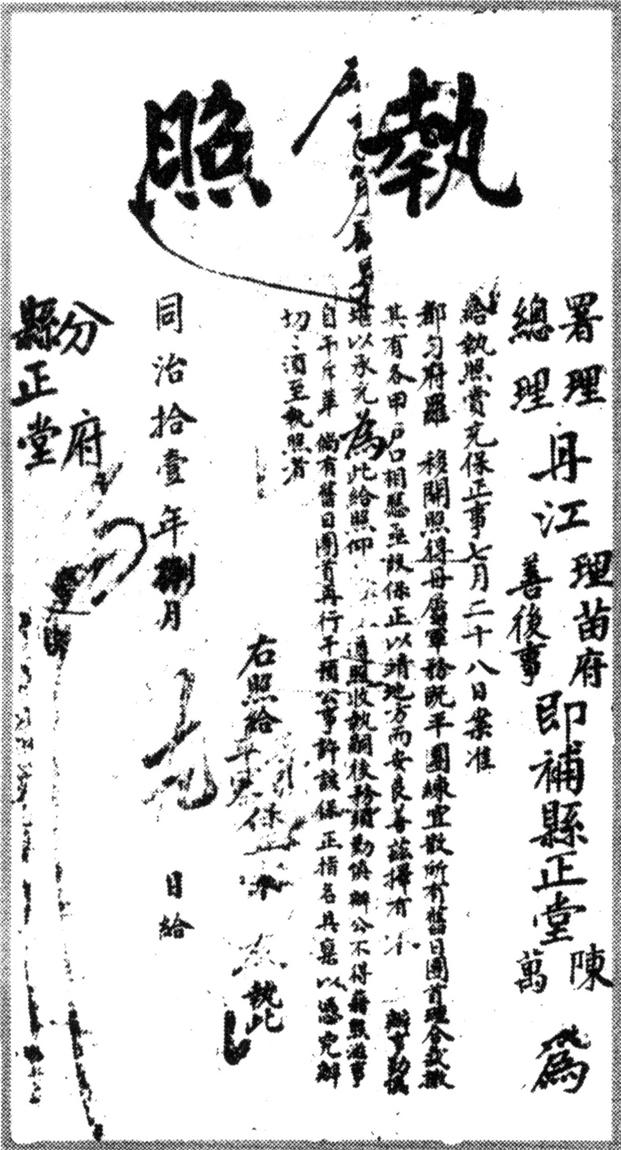 執照
署總理理丹江理苗府善後事即補縣正堂陳萬為
給執照賞充保正事七月二十八日案准
都勻府羅 移開照得丹屬軍務既平團練宜散所有舊日團首理合裁撤
其有各甲戶口相應亟設保正以靖地方而安良善茲擇有 辦事勤慎
堪以承充為此給照仰 遵照收執嗣後務須勤慎辦公不得藉照滋事
自干斥革倘有舊日團首再行干預公事許該保正指名具稟以憑究辦
切切須至執照者
右照給 保 執此
同治拾壹年捌月 日給
分府
縣正堂